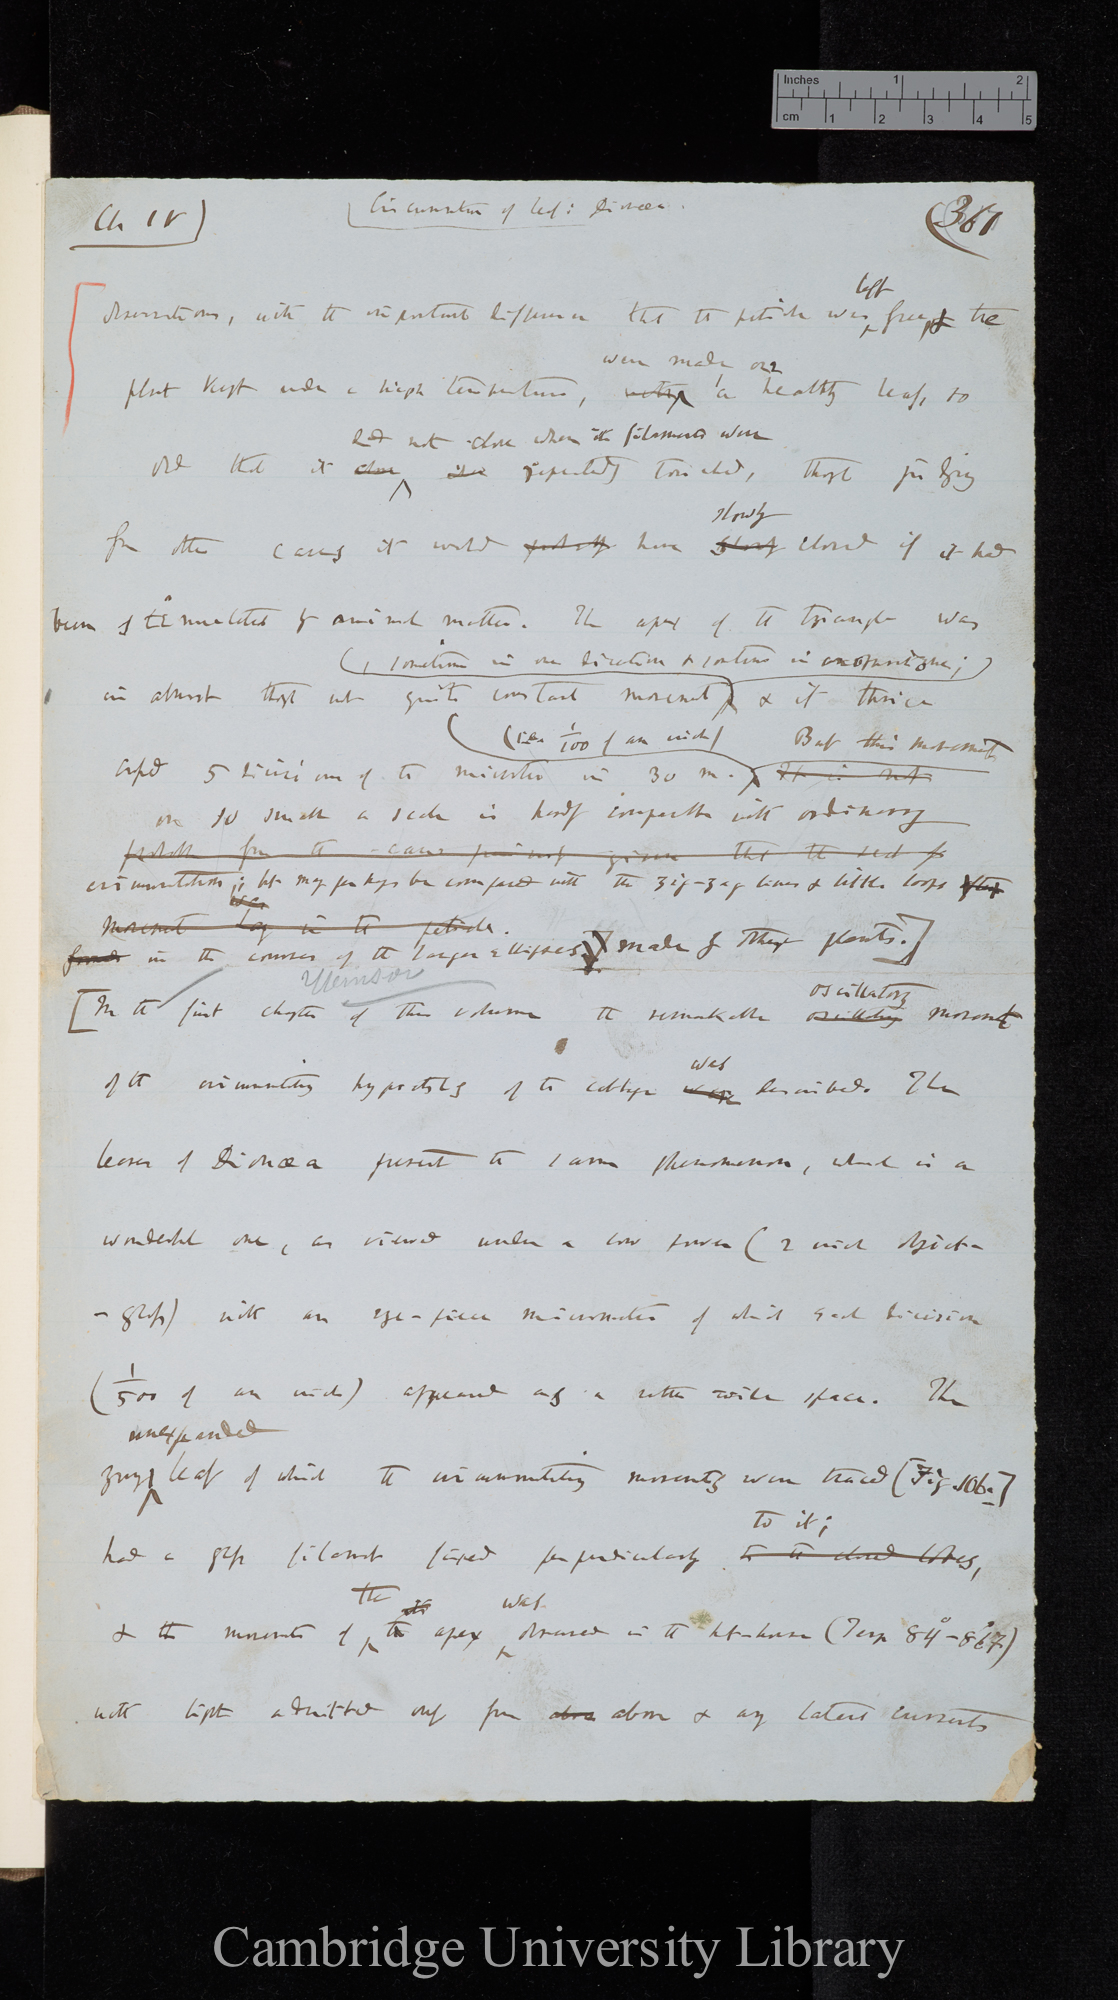 Inches 1 2
cm 1 2 3 4 5
Ch IV)
Circumnutation of leaf: Dionæa.
(361
left
observations, with the important difference that the petiole was free, & the
were made on
plant kept under a high temperature, a healthy leaf, so
did not close when the filaments were
old that it close repeatedly touched, though judging
slowly
from other cases it would probably have slowly closed if it had
been stimulated by animal matter. The apex of the triangle was
(, sometimes in one direction & sometimes in an opposite one;)
in almost though not quite constant movement & it thrice
(i.e. 1/100 of an inch) But this movement
crossed 5 divisions of the micrometer in 30 m. It is not
on so small a scale is hardly comparable with ordinary
probable from the cases given that the
circumnutation; but may perhaps be compared with the zig-zag lines & little loops
movement lay in the petiole.
found in the courses of the larger ellipses made by other plants.]
[In the first chapter of this volume the remarkable oscillating movements
oscillatory
was
of the circumnutating hypocotyls of the cabbage were described. The
leaves of Dionæa present the same phenomenon, which is a
wonderful one, as viewed under a low power (2 inch object-
-glass) with an eye-piece micrometer of which each division
(1/500 of an inch) appeared as a rather wide space. The
unexpanded
young leaf of which the circumnutating movements were traced (Fig. 106.)
to it;
had a glass filament fixed perpendicularly to the closed lobes,
the was
& the movements of the apex observed in the hot-house (Temp 84° - 86°F.)
with light admitted only from above above & any lateral currents
Cambridge University Library